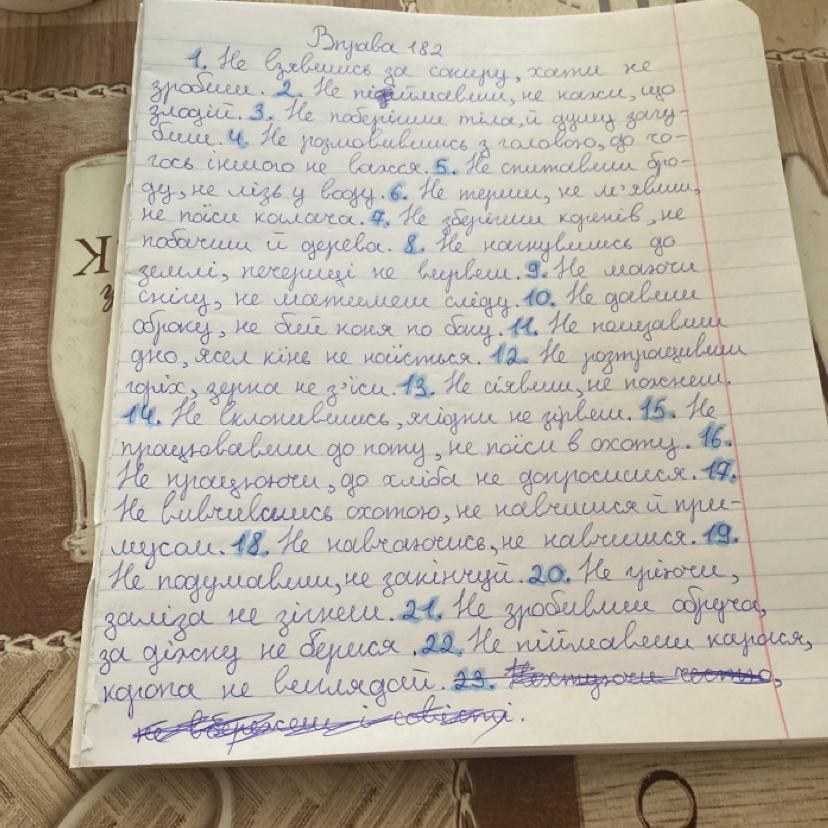 Вправа 182
1. Не взявшись за сокиру, хати не
зробиш. 2. Не піймавши, не кажи, що
злодій. 3. Не поберігши тіла, й душу загу-
биш. 4. Не розмовившись з головою, до чо-
гось іншого не вахся. 5. Не спитавши бро-
ду, не лізь у воду. 6. Не терши, не м'явши,
не поїси калача. 7. Не зберігши коренів, не
побачиш й дерева. 8. Не нагнувшись до
землі, печериці не вирвеш. 9. Не маючи
снігу, не матимеш сліду. 10. Не давши
оброку, не бий коня по боку. 11. Не
дно, ясел кінь не наїсться. 12. Не розтрощивши
горіх, зерна не з'їси. 13. Не сіявши, не пожнеш.
14. Не вклонившись, ягідки не зірвеш. 15. Не
працювавши до поту, не поїси в охоту. 16.
Не працюючи, до хліба не допросишся. 17.
Не вивчившись охотою, не навчишся й при-
мусом. 18. Не навчаючись, не навчишся. 19.
Не подумавши, не закінчуй. 20. Не гріючи,
заліза не зігнеш. 21. Не зробивши обруча,
за діжку не берися. 22. Не піймавши карася,
коропа не виглядай. 23.